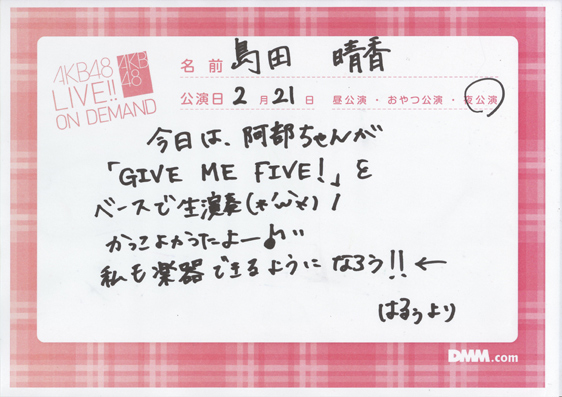 AKB48
LIVE!!
ON DEMAND
AKB
48
名前 島田 晴香
公演日 2月21日 昼公演・おやつ公演・夜公演
今日は、阿部ちゃんが
「GIVE ME FIVE!」を
ベースで生演奏(*'ω'*)!
かっこよかったよー♪
私も楽器できるようになろう!!←
はるぅより
DMM.com